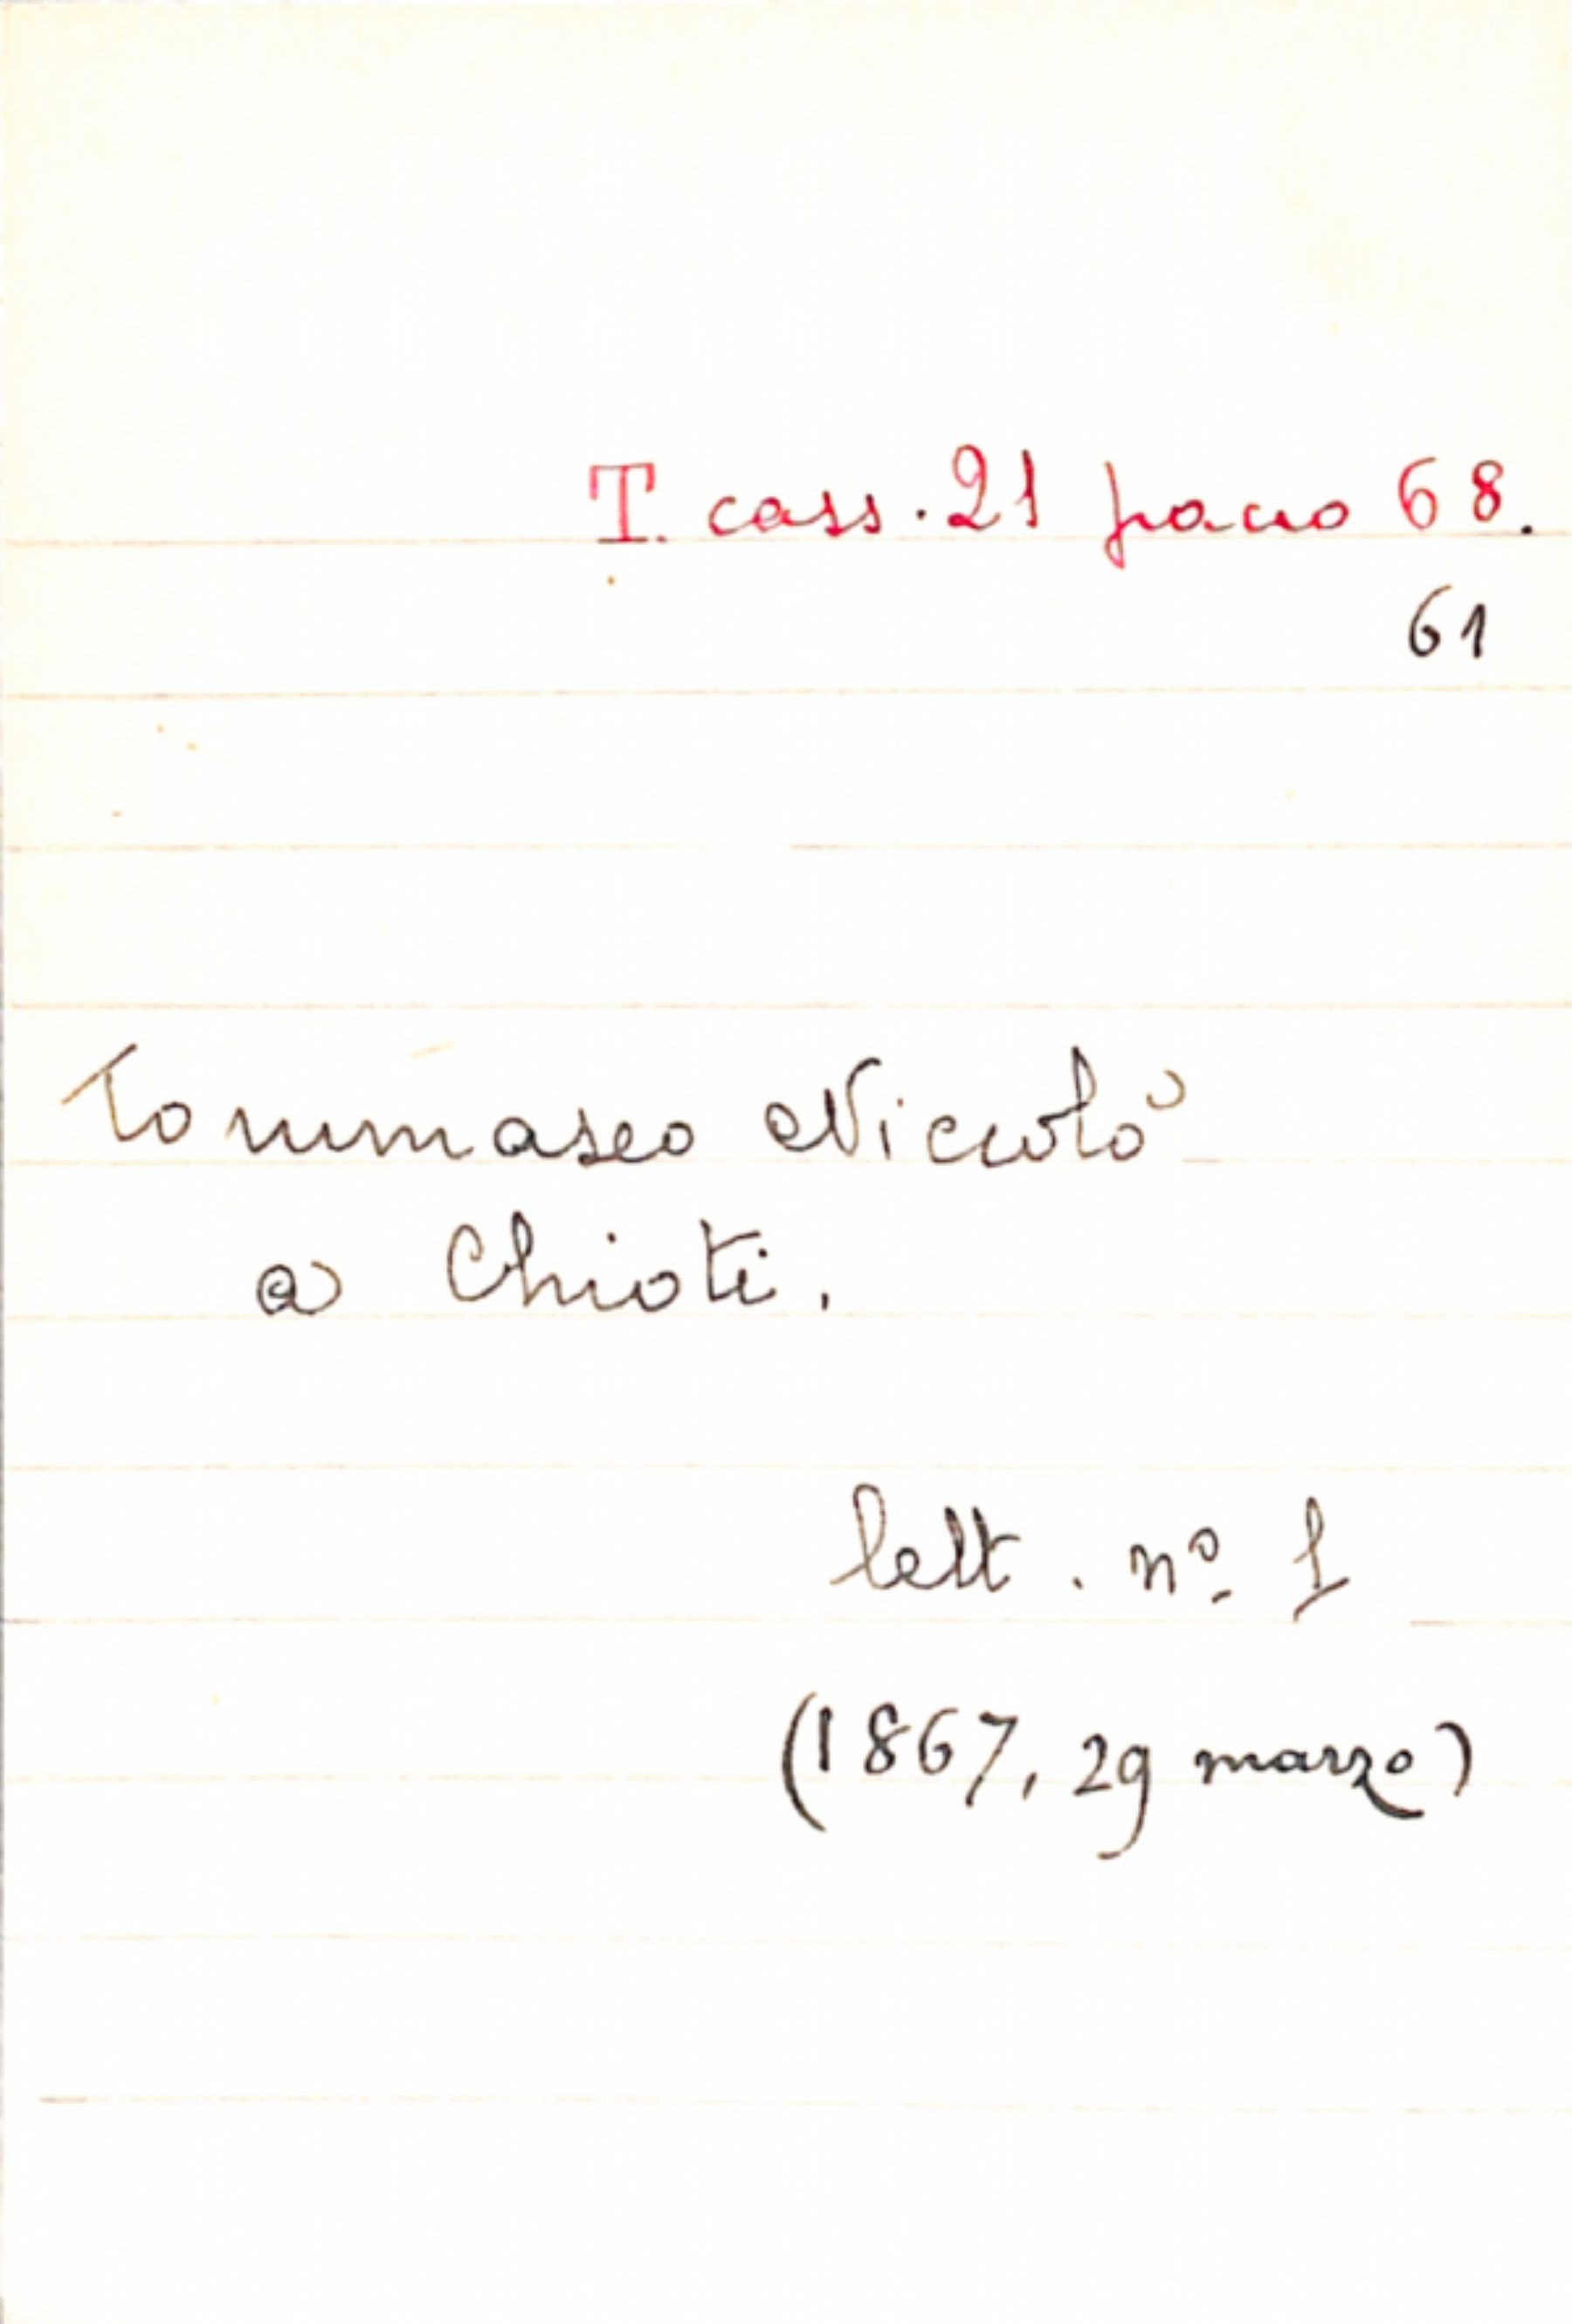 T. cass. 21 pacco 68.
61
Tommaseo Niccolò
a Chioti.
lett. nº 1
(1867, 29 marzo)